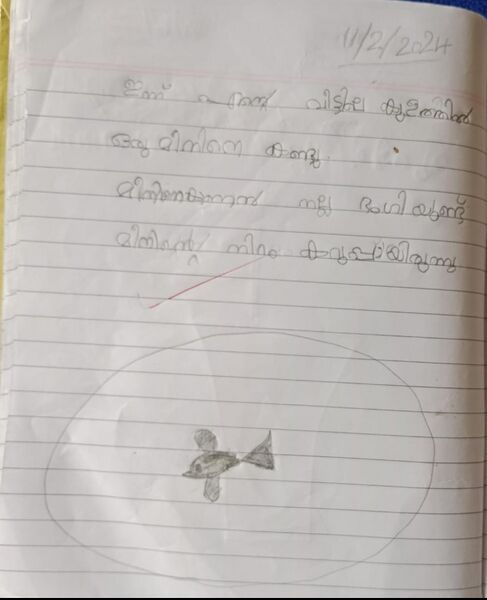 11/2/2024
ഇന്ന് എന്റെ വീട്ടിലെ കുളത്തിൽ
ഒരു മീനിനെ കണ്ടു.
മീനിനെകാണാൻ നല്ല ഭംഗിയുണ്ട്
മീനിന്റെ നിറം കറുപ്പായിരുന്നു